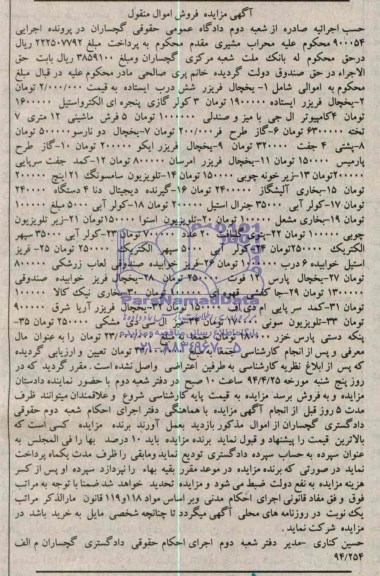 آگهی مزایده فروش اموال منقول
حسب اجرائیه صادره از شعبه دوم دادگاه عمومی حقوقی گچساران در پرونده اجرایی
۹۰۰۰۵۴ محکوم علیه محراب مشیری مقدم محکوم به پرداخت مبلغ ۲۲۲۵۰۷۷۹۲ ریال
درحق محکوم له بانک ملت شعبه مرکزی گچساران ومبلغ ۳۸۵۹۱۰۰ ریال بابت حق
الاجراء در حق صندوق دولت گردیده خانم پری صالحی مادر محکوم علیه در قبال مبلغ
محکوم به اموالی شامل ۱- یخچال فریزر شش درب ایستاده به قیمت ۲/۰۰۰/۰۰۰ تومان
۲-یخچال فریزر ایستاده ۱۹۰۰۰۰۰ تومان ۳ کولر گازی پنجره ای الکترواستیل ۱۶۰۰۰۰۰
تومان ۴کامپیوتر ال جی با میز و صندلی ۱۰۰۰۰۰۰ تومان ۵ فرش ماشینی ۱۲ متری ۷
تخته ۶۳۰۰۰۰۰ تومان ۶-گاز طرح فر ۲۰۰/۰۰۰ تومان ۷-یخچال دو نارسو ۵۰۰۰۰۰ تومان
۸-پشتی ۴ جفت ۳۲۰۰۰۰ تومان ۹-یخچال فریزر ایکو ۲۰۰۰۰۰ تومان ۱۰-گاز طرح
پارمیس ۱۵۰۰۰۰ تومان ۱۱-یخچال فریزر امرسان ۸۰۰۰۰۰ تومان ۱۲-کمد جفت سرپایی
۲۰۰۰۰۰تومان ۱۳-زیر خونه چوبی ۱۵۰۰۰۰ تومان ۱۴-تلویزیون سامسونگ ۲۱ اینچ ۲۰۰۰۰۰
تومان ۱۵-بخاری آلیشگاز ۲۴۰۰۰۰ تومان ۱۶-گیرنده دیجیتال دنا ۴ دستگاه ۲۴۰۰۰۰
تومان ۱۷-کولر آبی ۳۵۰۰ جنرال استیل ۲۰۰۰۰۰ تومان ۱۸-کولر آبی ۵۰۰۰ مبلغ ۱۰۰۰۰۰
تومان ۱۹-بخاری مشعل ۱۰۰۰۰۰ تومان ۲۰-تلویزیون اسنوا ۱۵۰۰۰۰ تومان ۲۱-زیر تلویزیون
چوبی ۱۰۰۰۰۰ تومان ۲۲-پتوی گلبافت ۲۰ عدد ۷۰۰۰۰۰ تومان ۲۳-کولر آبی ۳۵۰۰ سپهر
الکتریک ۲۵۰۰۰۰تومان ۲۴-کولر آبی ۵۰۰۰ سپهر الکتریک ۲۵۰۰۰۰ تومان ۲۵- فریز
استیل خوابیده ۶ درب تومان ۲۶-فریز خوابیده صندوقی لعاب زرشکی ۸۰۰۰۰۰
تومان ۲۷-یخچال پارس ۱۱ فوت تومان ۲۸-یخچال فریز خوابیده صندوقی
۱۳۰۰۰۰۰ تومان ۲۹-جا تومان ۳۰-بخاری نیک کالا ۱۰۰۰۰۰
تومان ۳۱-کمد سر پایی ام دی اف ۱۵۰۰۰۰ تومان ۳۲-یخچال فریزر آریا شرق ۹۰۰۰۰۰
تومان ۳۳-تلویزیون سونی مشکی ۲۵۰۰۰۰ تومان ۳۵-
پنکه دستی پارس خزر تومان تومان را به عنوان مال
معرفی و پس از انجام کارشناسی تومان تعیین و ارزیابی گردیده
که پس از ابلاغ نظریه کارشناسی به طرفین اعتراضی واصل نشده است. مقرر گردید که در
روز پنج شنبه مورخه ۹۴/۴/۲۵ ساعت ۱۰ صبح در دفتر شعبه دوم با حضور نماینده دادستان
مزایده و به فروش برسد مزایده به قیمت پایه کارشناسی شروع و علاقمندان میتوانند ظرف
مدت ۵ روز قبل از انجام آگهی مزایده با هماهنگی دفتر اجرای احکام شعبه دوم حقوقی
دادگستری گچساران از اموال مذکور بازدید بعمل آورند برنده مزایده کسی است که
بالاترین قیمت را پیشنهاد و قبول نماید برنده مزایده باید ۱۰ درصد بها را فی المجلس به
عنوان سپرده به حساب سپرده دادگستری تودیع نماید ومابقی را ظرف مدت یکماه پرداخت
نماید در صورتی که برنده مزایده در موعد مقرر بقیه بهاء را نپردازد سپرده او پس از کسر
هزینه مزایده به نفع دولت ضبط می شود و مزایده تجدید خواهد شد ضمنا با توجه به مراتب
فوق و فق مفاد قانونی اجرای احکام مدنی ویر اساس مواد ۱۱۸و۱۱۹ قانون مارالذکر مراتب
یک نوبت در روزنامه های محلی آگهی میگردد تا چنانچه شخصی مایل به خرید باشد در
مزایده شرکت نماید .
حسین کناری -مدیر دفتر شعبه دوم اجرای احکام حقوقی دادگستری گچساران م الف
۹۴/۲۵۴
ParsNamadData
۰۲۱-۸۸۳۴۹۶۷۰-۵